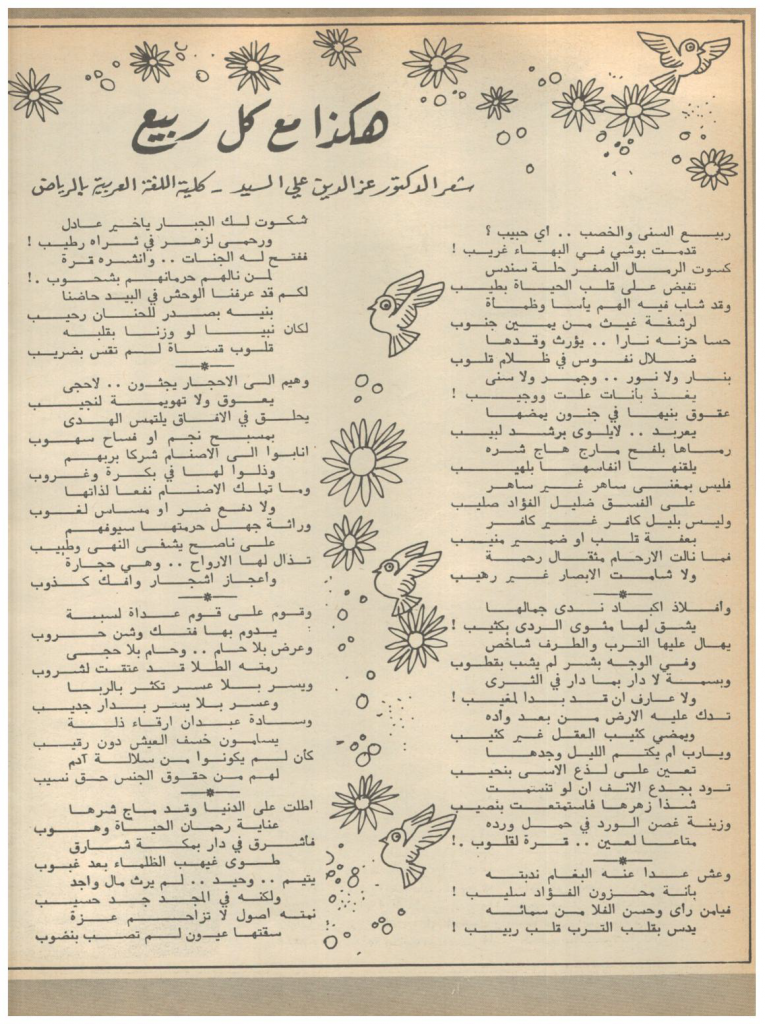 هكذا مع كل ربيع
شعر الدكتور عز الدين علي السيد - كلية اللغة العربية بالرياض
ربيع السنى والخصب .. اي حبيب ؟
قدمت بوشي في البهاء غريب !
كسوت الرمال الصفر حلة سندس
تفيض على قلب الحياة بطيب
وقد شاب فيه الهم يأسا وظمأة
لرشفة غيث من يمين جنوب
حسا حزنه نارا .. يؤرث وقدها
ضلال نفوس في ظلام قلوب
بنار ولا نور .. وجمر ولا سنى
يغذ بأنات علت ووجيب !
عقوق بنيها في جنون يمضها
يعربد .. لايلوى برشد لبيب
رماها بلفح مارج هاج شره
يلقنها انفاسها بلهيب
فليس بمغنى ساهر غير ساهر
على الفسق ضليل الفؤاد صليب
وليس بليل كافر غير كافر
بعفة قلب او ضمير منيب
فما نالت الارحام مثقال رحمة
ولا شامت الابصار غير رهيب
وأفلاذ اكباد ندى جمالها
يشق لها مثوى الردى بكثيب !
يهال عليها الترب والطرف شاخص
وفي الوجه بشر لم يشب بقطوب
وبسمة لا دار بما دار في الثرى
ولا عارف ان قد بدا لمغيب !
تدك عليه الارض من بعد وأده
ويمضي كثيب العقل غير كئيب
ويارب ام يكتم الليل وجدها
تعين على لذع الاسى بنحيب
تود بجدع الانف ان لو تنسمت
شذا زهرها فاستمتعت بنصيب
وزينة غصن الورد في حمل ورده
متاعا لعين .. قرة لقلوب .!
وعش عدا عنه البغام ندبته
بأنة محزون الفؤاد سليب !
فيامن رأى وحسن الفلا من سمائه
يدس بقلب الترب قلب ربيب !
شكوت لك الجبار ياخير عادل
ورحمى لزهر في ثراه رطيب !
ففتح له الجنات .. وانشره قرة
لمن نالهم حرمانهم بشحوب .!
لكم قد عرفنا الوحش في البيد حاضنا
بنيه بصدر للحنان رحيب
لكان نبيا لو وزنا بقلبه
قلوب قساة لم تقس بضريب
وهيم الى الاحجار يجثون .. لاحجى
يعوق ولا تهويمة لنجيب
يحلق في الافاق يلتمس الهدى
بمسبح نجم او فساح سهوب
انابوا الى الاصنام شركا بربهم
وذلوا لها في بكرة وغروب
وما تملك الاصنام نفعا لذاتها
ولا دفع ضر او مساس لغوب
وراثة جهل حرمتها سيوفهم
على ناصح يشفى النهى وطبيب
تذال لها الارواح .. وهي حجارة
واعجاز اشجار وافك كذوب
وقوم على قوم عداة لسبة
يدوم بها فتك وشن حروب
وعرض بلا حام .. وحام بلا حجى
رمته الطلا قد عتقت لشروب
ويسر بلا عسر تكثر بالربا
وعسر بلا يسر بدار جديب
وسادة عبدان ارقاء ذلة
يسامون خسف العيش دون رقيب
كأن لم يكونوا من سلالة آدم
لهم من حقوق الجنس حق نسيب
اطلت على الدنيا وقد ماج شرها
عناية رحمان الحياة وهوب
فأشرق في دار بمكة شارق
طوى غيهب الظلماء بعد غيوب
يتيم .. وحيد .. لم يرث مال واجد
ولكنه في المجد جد حسيب
نمته اصول لا تزاحم عزة
سقتها عيون لم تصب بنضوب